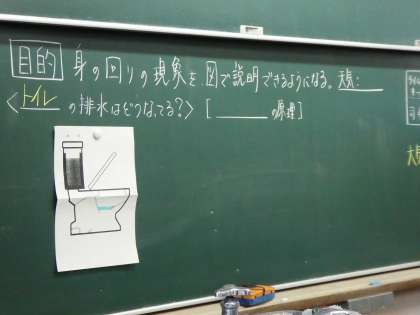 目的 身の回りの現象を図で説明できるようになる。天気:
〈トイレの排水はどうなってる?〉 [ の原理]